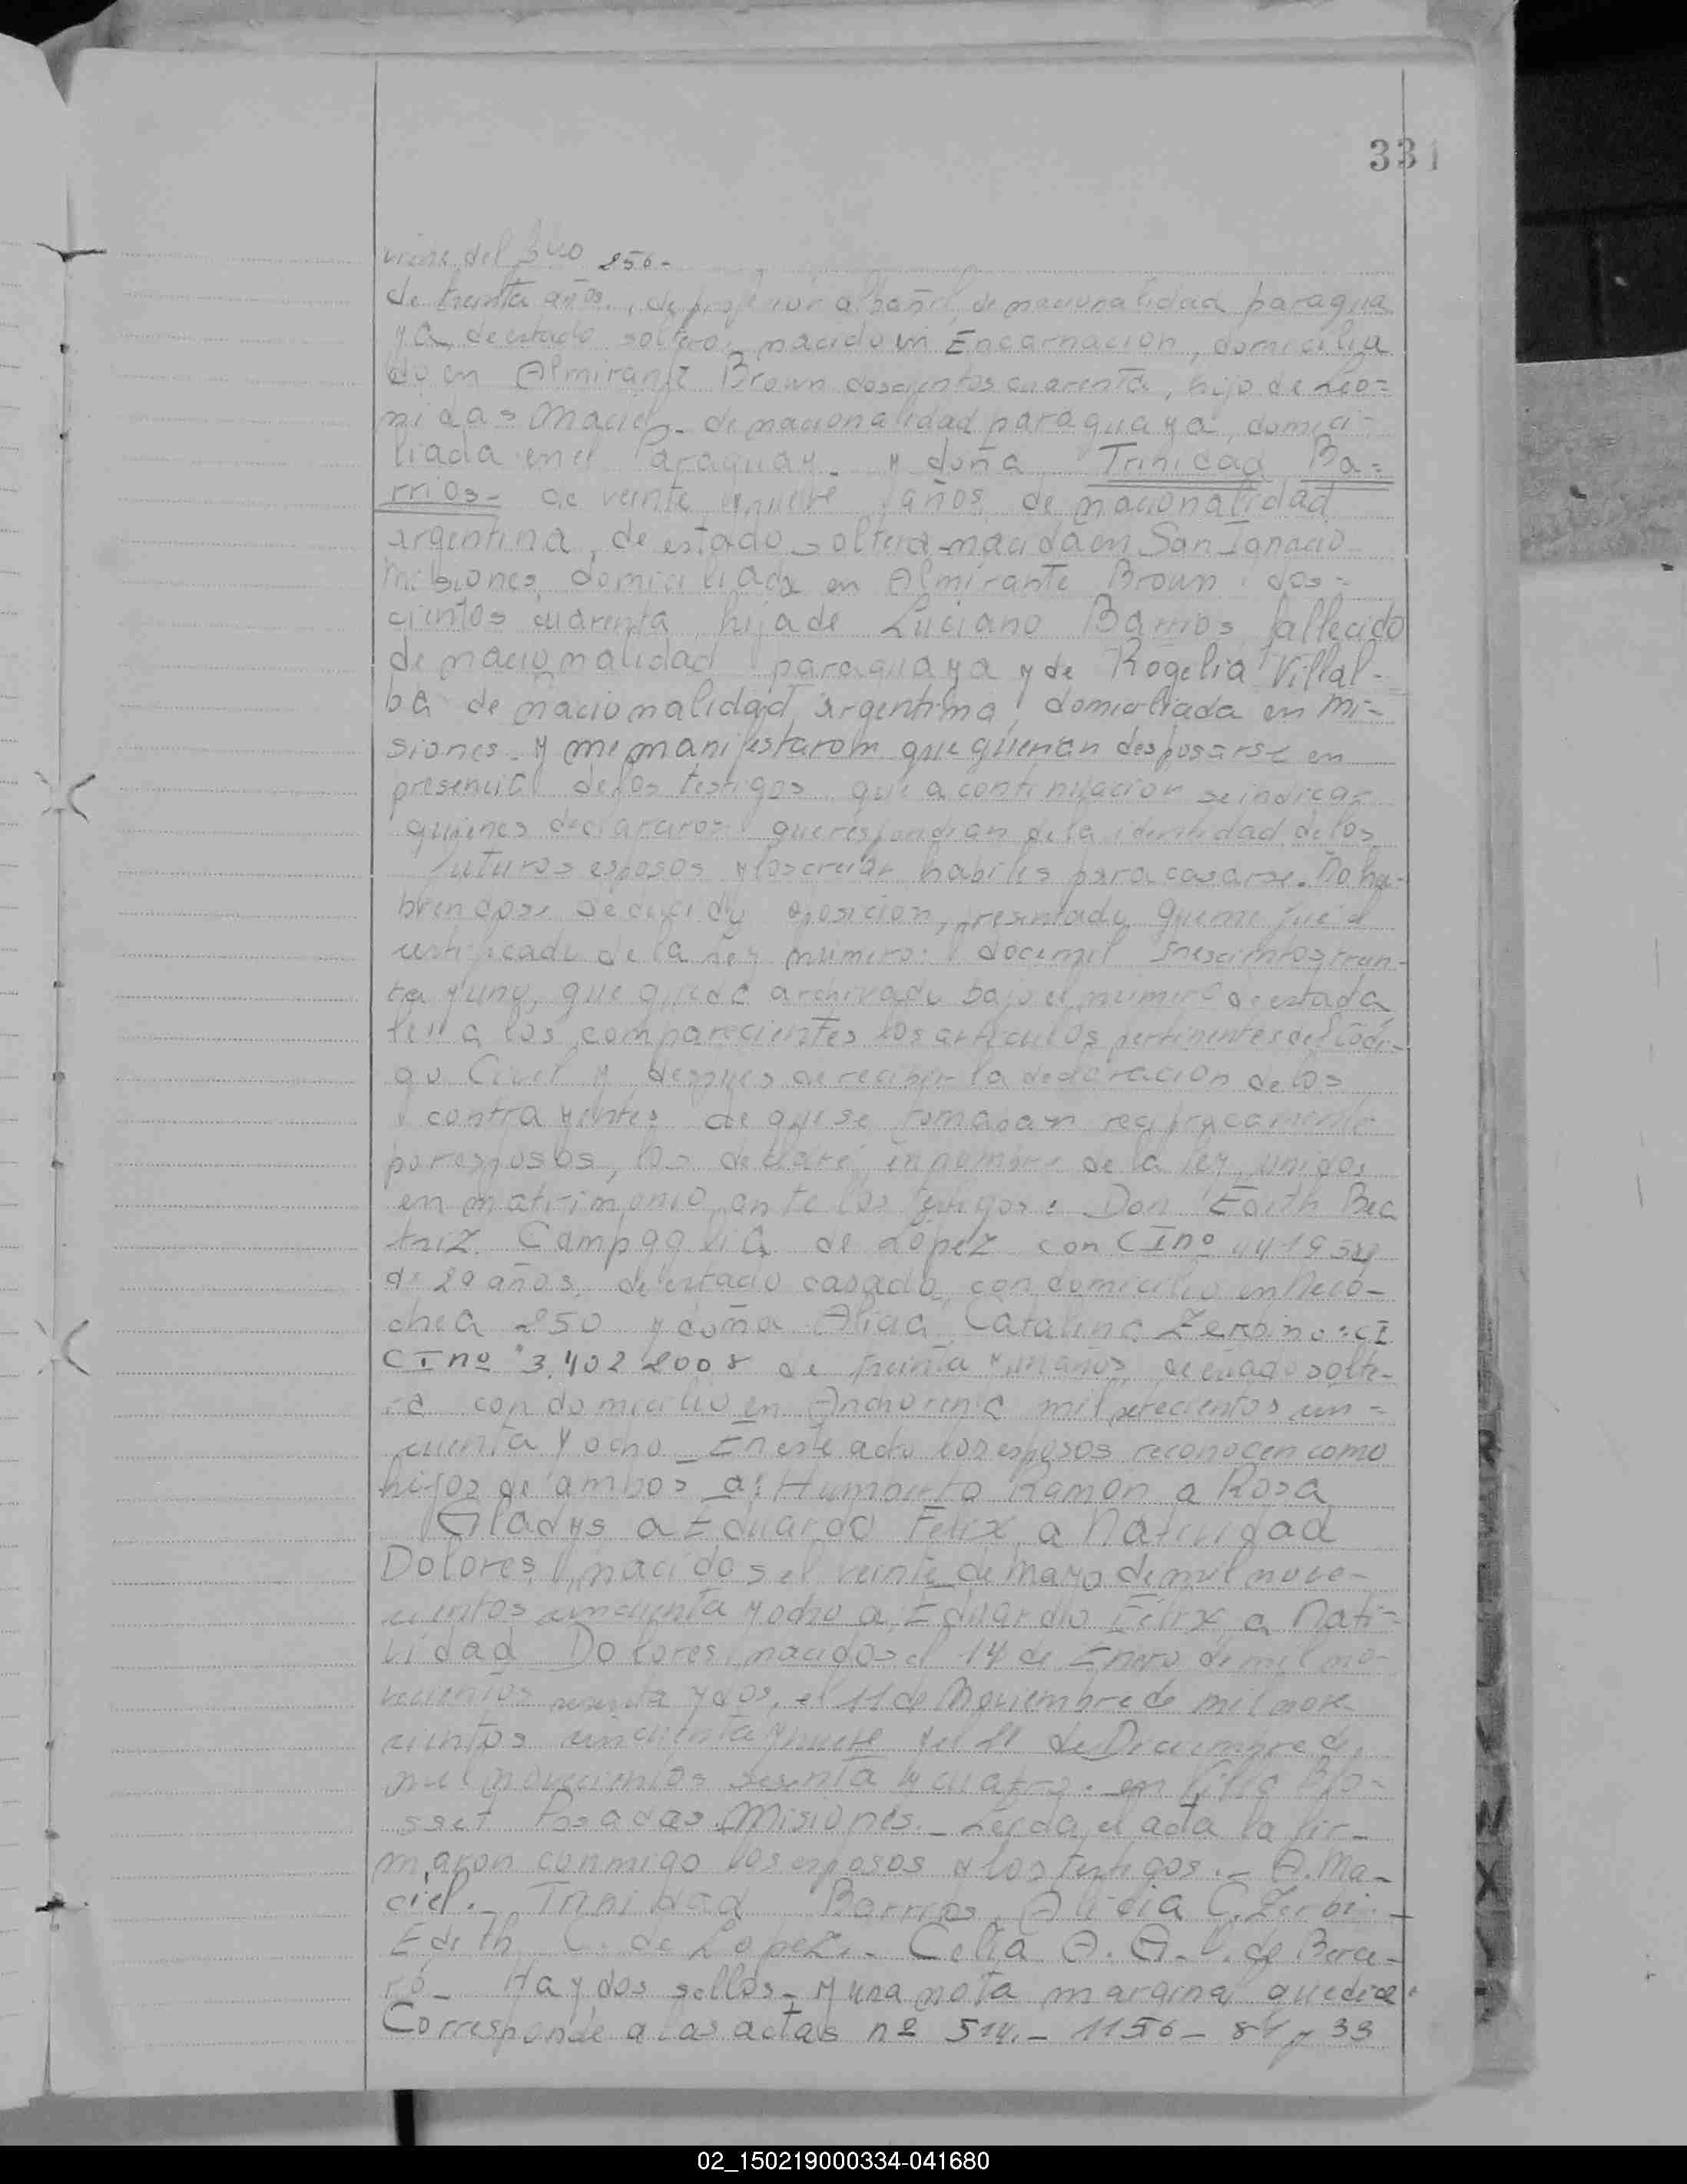 331
viene del 256.-
de treinta años, de profesion albañil, de nacionalidad paragua
ya, de estado soltero, nacido en Encarnacion, domicilia
do en Almirante Brown doscientos cuarenta, hijo de Leo=
nidas Maciel - de nacionalidad paraguaya, domici-
liada en el Paraguay - y doña Trinidad Ba=
rrios - de veinte y nueve años de nacionalidad
argentina, de estado soltera - nacida en San Ignacio
Misiones, domiciliada en Almirante Brown dos=
cientos cuarenta, hija de Luciano Barrios, fallecido
de nacionalidad paraguaya y de Rogelia Villal-
ba de nacionalidad argentina, domiciliada en Mi-
siones - y me manifestaron que querian desposarse en
presencia de los testigos que a continuacion se indican
quienes declararon que respondian de la identidad de los
futuros esposos y los creian habiles para casarse. No ha-
biendose deducido oposicion, presentado que me fue el
certificado de la ley numero: doce mil trescientos trein-
ta y uno, que queda archivado bajo el numero de esta acta
lei a los comparecientes los articulos pertinentes del Codi-
go Civil y despues de recibir la declaracion de los
contrayentes de que se tomaban reciprocamente
por esposos, los declaré en nombre de la ley, unidos
en matrimonio ante los testigos: Don Edith Bea
triz Campoglia de Lopez con CI nº
de 29 años, de estado casada, con domicilio en Neco-
chea 250 y doña Alicia Catalina Zerbino: CI
CI nº 3.402.2008 de treinta y un años, de estado solte-
ra con domicilio en Anchorena mil setecientos cin=
cuenta y ocho - En este acto los esposos reconocen como
hijos de ambos a: Humberto Ramon a Rosa
Gladys a Eduardo Felix a Natividad
Dolores, nacidos el veinte de Mayo de mil nove-
cientos cincuenta y ocho a Eduardo Felix a Nati=
vidad Dolores, nacidos el 14 de Enero de mil no-
vecientos sesenta y dos, el 11 de Noviembre de mil nove
cientos cincuenta y nueve y el 21 de Diciembre de
mil novecientos sesenta y cuatro. en Villa Blo=
sset Posadas Misiones. - Leida el acta la fir-
maron conmigo los esposos y los testigos. - A. Ma-
ciel. - Trinidad Barrios. Alicia C. Zerbi. -
Edith C. de Lopez. - Celia A. de Berce-
ro - Hay dos sellos - y una nota marginal que dice:
Corresponde a las actas nº 514. - 1156 - 81 y 33
02_150219000334-041680